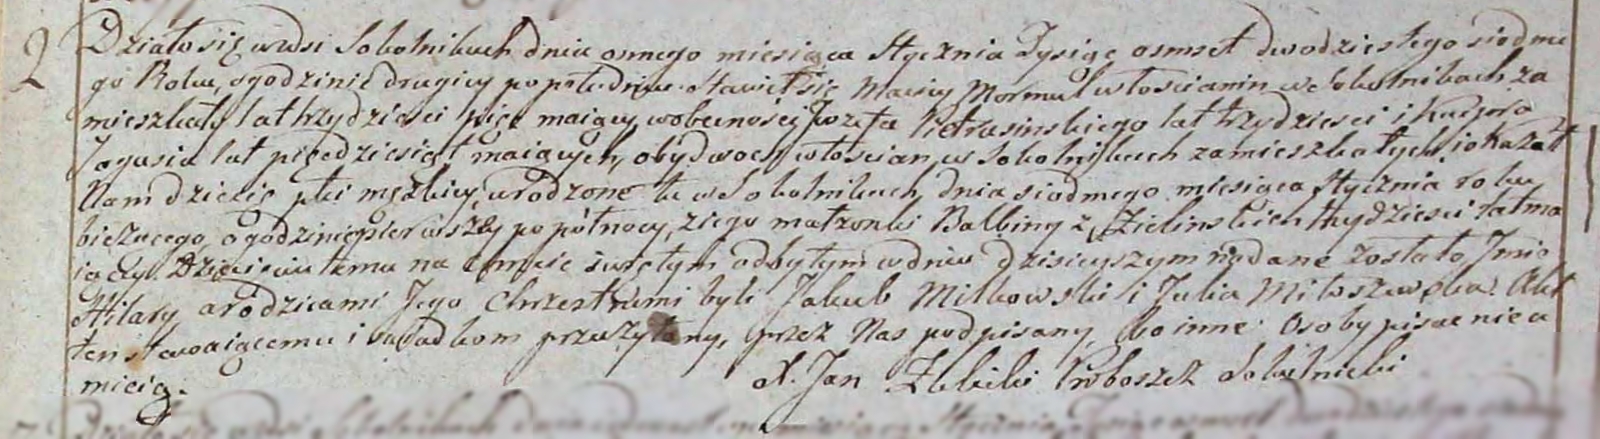 2
Działo się w wsi Sokolnikach dnia osmego miesiąca Stycznia Tysiąc osmset dwodziestego siodme
go Roku, o godzinie drugiey po południu. Stawił się Maciey Mormul włoscianin w Sokolnikach za
mieszkały lat trzydziesci pięć maiący, w obecności Jozefa Pietrasinskiego lat trzydziesci i Kacpra
Jagusia lat pięćdziesiąt maiących, obydwoch włoscian, w Sokolnikach zamieszkałych, i okazał
Nam dziecię płci męzkiey, urodzone tu w Sokolnikach, dnia siodmego miesiąca Stycznia roku
bieżącego, o godzinie pierwszey po północy, z iego małzonki Balbiny z Zielinskich trzydziesci lat ma
iący. Dziecięciu temu na Chrzcie świętym odbytym w dniu dzisieyszym nadane zostało Jmie
Hilary a rodzicami Jego Chrzestnemi byli Jakub Milkowski i Julia Miłoszewska. Akt
ten stawaiącemu i swiadkom przeczytany, przez Nas podpisany, bo inne Osoby pisac nie u
mieią.
X. Jan Proboszcz Sokolnicki